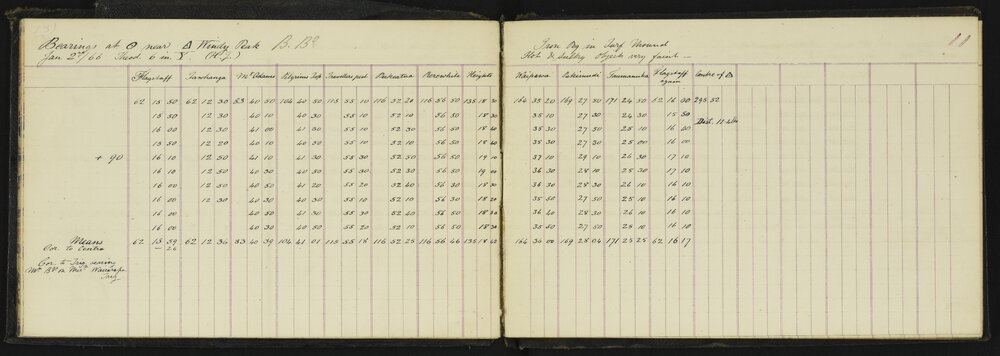 Bearings at ʘ near Δ Windy Peak B. Bd
Jan 2nd/66 Theod. 6 in Y. (H.J.)
Flagstaff Tawhanga Mt Adams Pilgrims Top Traveller pol Pukeatua Heights
62 15 50 62 12 30 83 40 50 104 40 50 115 55 10 116 52 20 116 56 50 135 18 30
15 50 12 30 40 10 40 30 55 10 52 10 56 50 18 30
16 00 12 30 41 00 41 30 55 10 52 30 56 50 18 40
15 50 12 20 40 10 40 50 55 10 52 10 56 50 18 40
+ 90 16 10 12 50 41 10 41 30 55 30 52 50 56 50 19 10
16 10 12 50 40 30 41 30 55 30 52 30 56 50 19 00
16 00 12 30 40 50 41 20 55 20 52 40 56 30 18 30
16 00 40 30 41 10 55 10 52 10 56 30 18 30
16 00 40 50 41 30 55 10 52 40 56 50 18 30
16 00 40 30 40 50 55 30 52 10 56 50 18 30
Means 62 15 59 62 12 36 83 40 39 104 41 01 115 55 18 116 52 25 116 56 46 135 18 42
Cor. to Centre — 26
Cor to Trig bearing
Mer. Bd on Mer. Wairarapa
Iron Peg in Turf Mound 11
Hot & Sultry Objects very faint —
Waipawa Taumaraka Flagstaff again Centre of Δ
164 35 20 169 27 50 171 24 50 62 16 30 295 52
35 10 27 30 24 30 15 50
Dist.
35 30 27 50 25 10 16 20
35 30 27 30 25 00 16 00
37 10 29 10 26 30 17 10
36 30 28 10 25 30 17 10
36 30 28 30 26 10 16 10
35 50 27 50 25 10 16 10
36 40 28 30 25 10 16 10
35 50 27 50 25 10 16 10
164 36 00 169 28 04 171 25 25 62 16 17